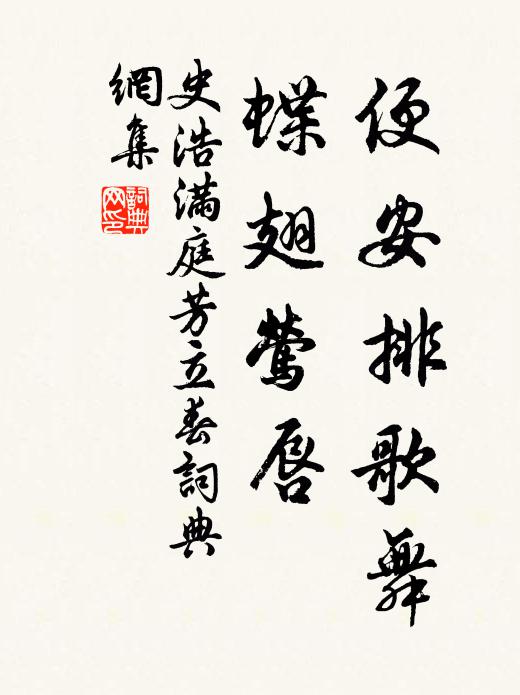 便安排歌舞
蝶翅莺唇
史浩满庭芳立春詞典
網集
詞典網印